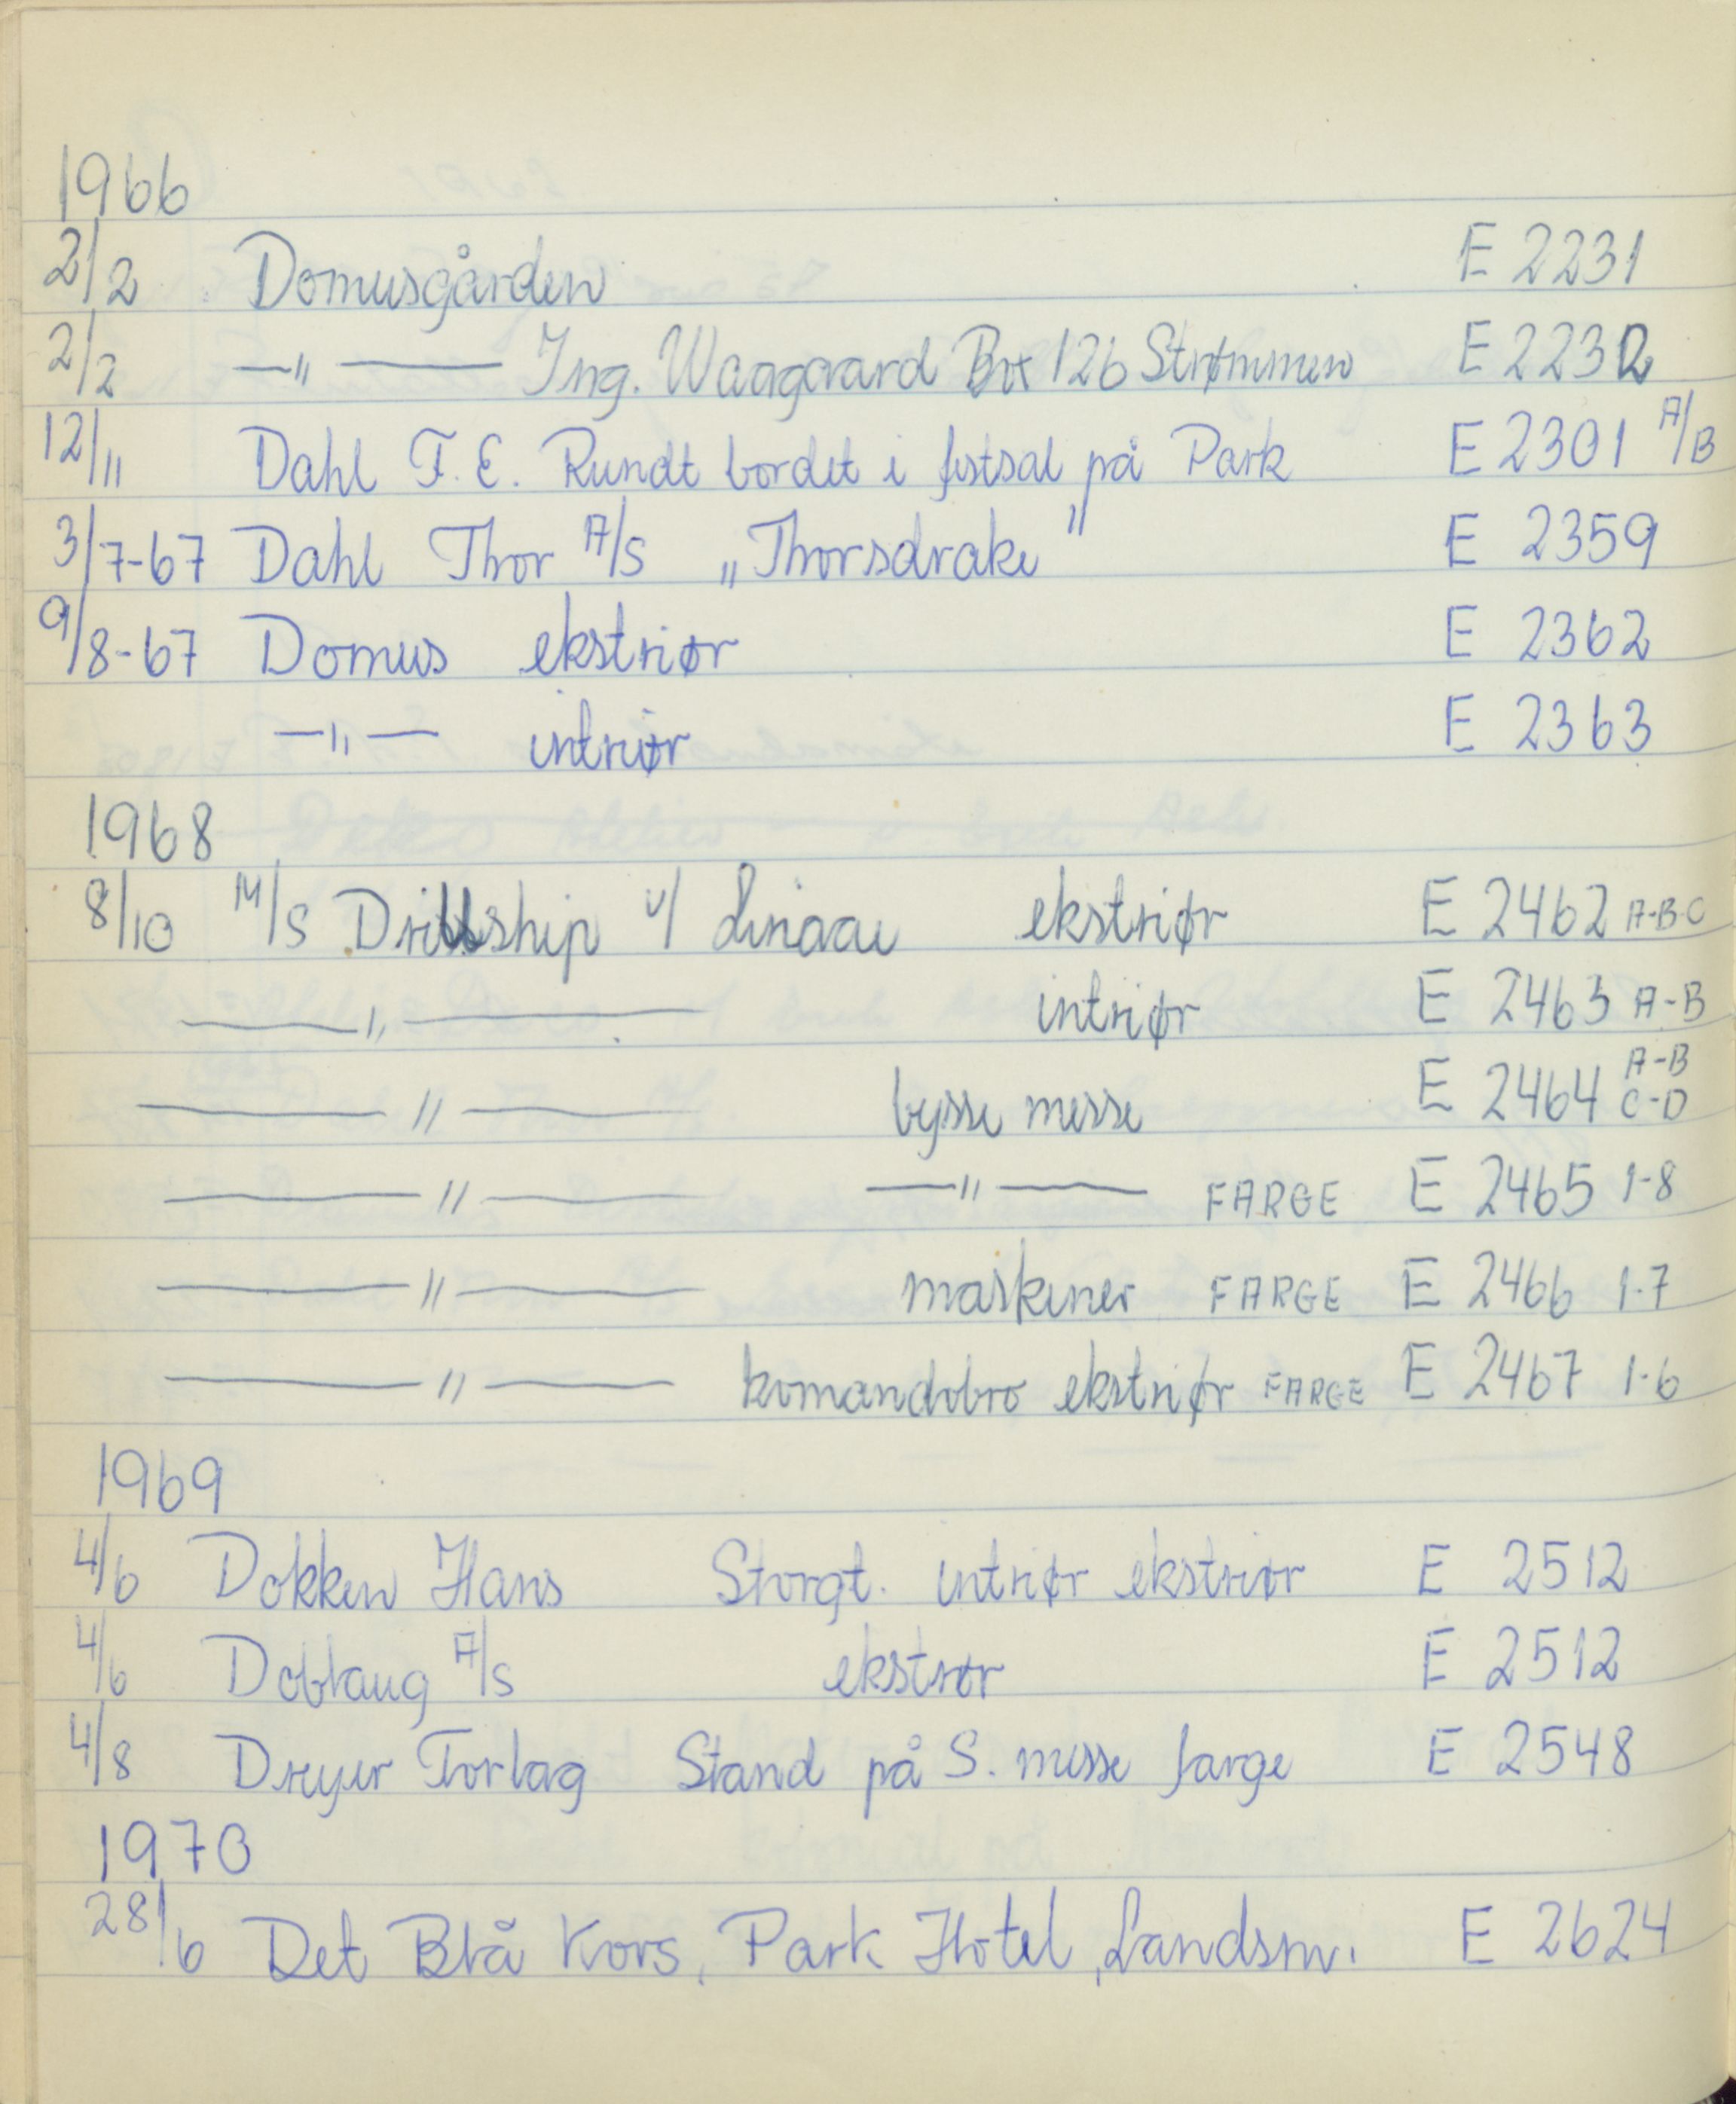 1966
2/2 Domusgården E 2231
2/2 —〃— Ing. Waagaard Box 126 Strømmen E 2232
12/11 Dahl F. E. Rundt bordet i festsal på Park E 2301 A/B
3/7-67 Dahl Thor A/S „Thorsdrake" E 2359
9/8-67 Domus eksteriør E 2362
—〃— interiør E 2363
1968
8/10 M/S Drillship v/ Linaae eksteriør E 2462 A-B-C
—〃— interiør E 2463 A-B
—〃— bysse messe E 2464 A-B C-D
—〃— —〃— FARGE E 2465 1-8
—〃— maskiner FARGE E 2466 1-7
—〃— komandobro eksteriør FARGE E 2467 1-6
1969
4/6 Dokken Hans Storgt. interiør eksteriør E 2512
4/6 Dobloug A/S eksteriør E 2512
4/8 Dreyer Forlag Stand på S. messe farge E 2548
1970
28/6 Det Blå Kors, Park Hotel, Landsm. E 2624